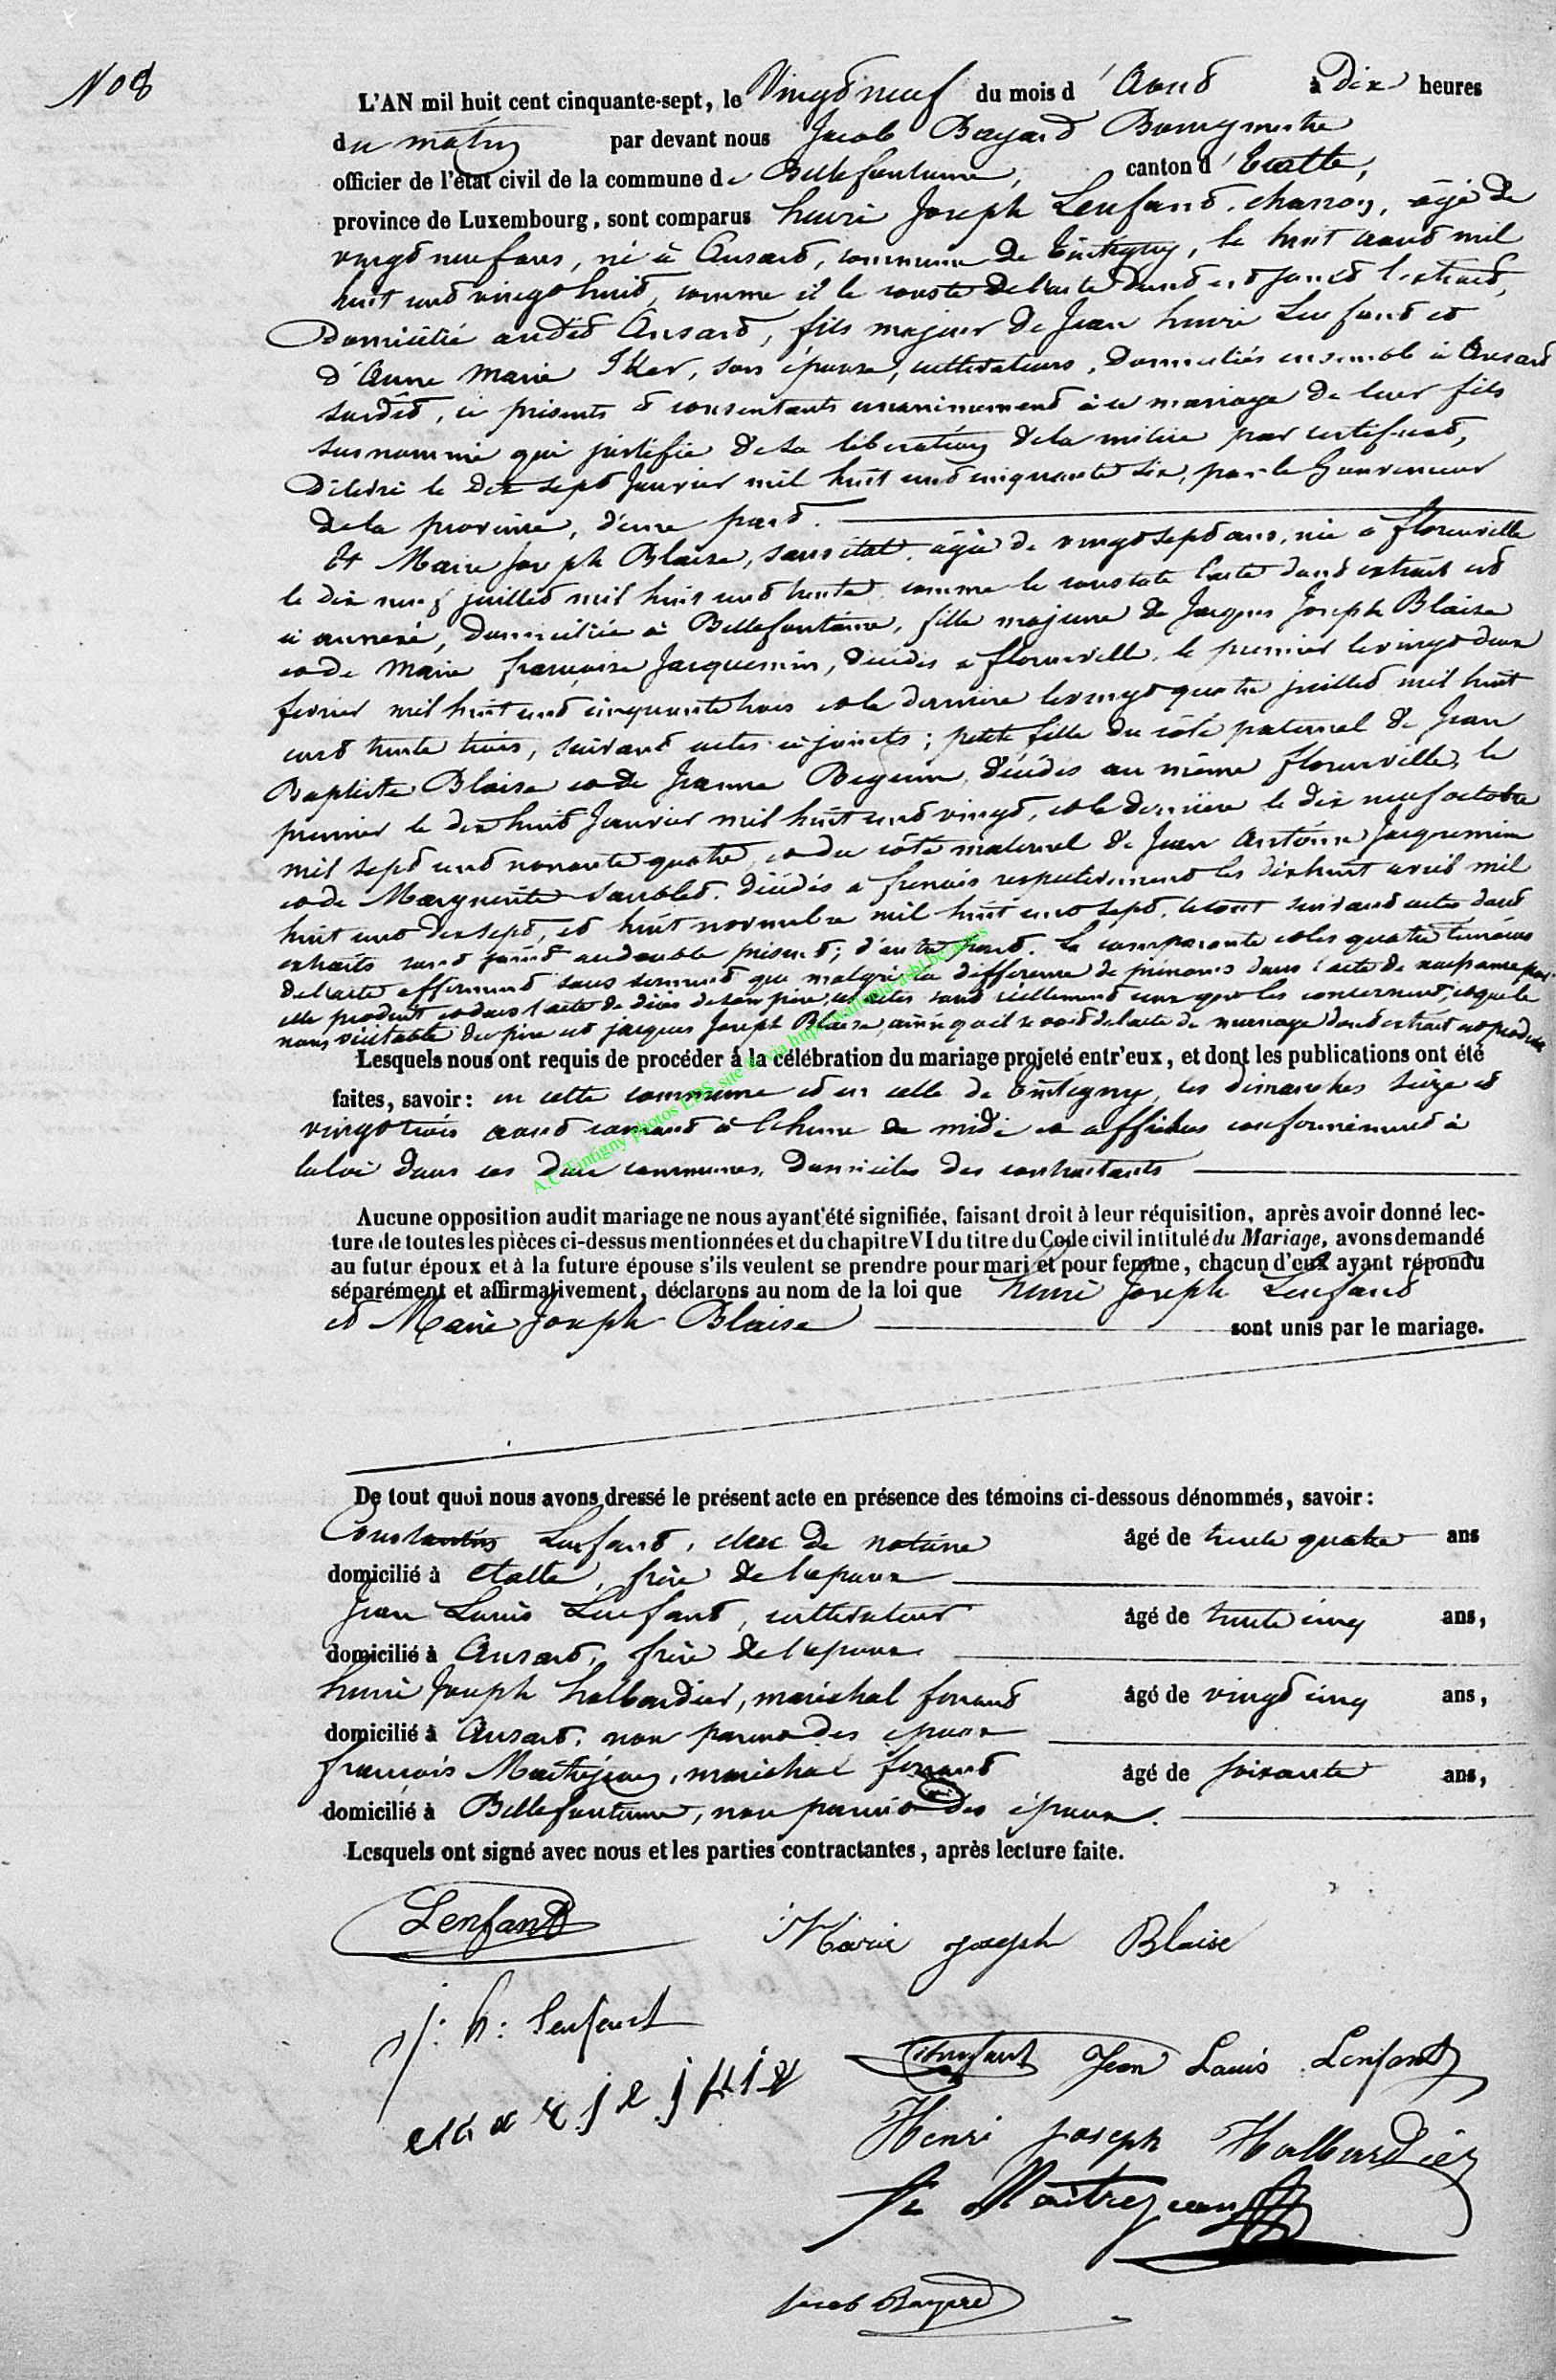 No 8
L'AN mil huit cent cinquante-sept, le Vingt neuf du mois d'Aout à dix heures
du matin par devant nous Jacob Bayard Bourgmestre
officier de l'état civil de la commune de Bellefontaine, canton d'Etalle,
province de Luxembourg, sont comparus henri Joseph Lenfant, charron, âgé de
vingt neuf ans, né à Ansart, commune de Tintigny, le huit aout mil
huit cent vingt huit, comme il le conste de l'acte dont est joint l'extrait,
Domicilié audit Ansart, fils majeur de Jean henri Lenfant et
d'Anne Marie Iker, son épouse, cultivateurs, domiciliés ensemble à Ansart
surdit, ci présents et consentants unanimement à ce mariage de leur fils
susnommé qui justifie de sa libération de la milice par certificat,
Délivré le dix sept Janvier mil huit cent cinquante six, par le Gouverneur
de la province, d'une part.
Et Marie Joseph Blaise, sans état, âgée de vingt sept ans, née à florenville
le dix neuf juillet mil huit cent trente, comme le constate l'acte dont extrait est
ci annexé, domiciliée à Bellefontaine, fille majeure de Jacques Joseph Blaise
et de Marie françoise Jacquemin, décédés à florenville, le premier le vingt deux
fevrier mil huit cent cinquante trois et la dernière le vingt quatre juillet mil huit
cent trente trois, suivant actes ci joints; petite fille du côté paternel de Jean
Baptiste Blaise et de Jeanne Beguin, décédés au même florenville, le
premier le dix huit Janvier mil huit cent vingt, et la dernière le dix neuf octobre
mil sept cent nonante quatre, et du côté maternel de Jean Antoine Jacquemin
et de Marguerite décédés à frenois respectivement les dix huit avril mil
huit cent dix sept, et huit novembre mil huit cent sept, suivant actes dont
extraits sont joints au double présent; d'autre part. La comparante et les quatre témoins
de l'acte affirment sous serment que malgré la difference de prénoms dans l'acte de naissance par
elle produit et dans l'acte de décès de son père, ces actes sont réellement ceux qui les concernent, et que le
nom véritable du père est jacques Joseph Blaise, ainsi qu'il se voit de l'acte de mariage dont extrait est produit
Lesquels nous ont requis de procéder à la célébration du mariage projeté entr'eux, et dont les publications ont été
faites, savoir: en cette commune et en celle de Tintigny, les dimanches seize et
vingt trois aout courant à l'heure de midi et affiches conformément à
la loi dans ces deux communes, domiciles des contractants
A.C. Tintigny photos EDS site via http://wallonia-asbl.be/actes
Aucune opposition audit mariage ne nous ayant été signifiée, faisant droit à leur réquisition, après avoir donné lec-
ture de toutes les pièces ci-dessus mentionnées et du chapitre VI du titre du Code civil intitulé du Mariage, avons demandé
au futur époux et à la future épouse s'ils veulent se prendre pour mari et pour femme, chacun d'eux ayant répondu
séparément et affirmativement, déclarons au nom de la loi que henri Joseph Lenfant
et Marie Joseph Blaise sont unis par le mariage.
De tout quoi nous avons dressé le présent acte en présence des témoins ci-dessous dénommés, savoir:
Constantin Lenfant, clerc de notaire âgé de trente quatre ans
domicilié à Etalle, frère de l'époux
Jean Louis Lenfant, cultivateur âgé de trente cinq ans,
domicilié à Ansart, frère de l'époux
henri Joseph halbardier, maréchal ferrant âgé de vingt cinq ans,
domicilié à Ansart, non parent des époux
françois Maitrejean, maréchal ferrant âgé de soixante ans,
domicilié à Bellefontaine, non parent des époux.
Lesquels ont signé avec nous et les parties contractantes, après lecture faite.
Lenfant Marie joseph Blaise
j: h: Lenfant
Lenfant Jean Louis Lenfant
Henri joseph Halbardier
fs Maitrejean
Jacob Bayard